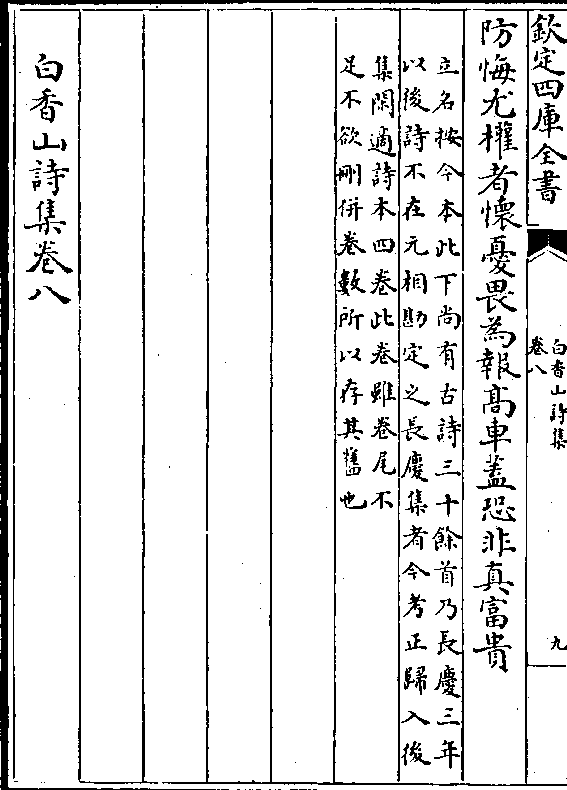 欽定四庫全書
白香山詩集
卷八
九
防悔尤權者懷憂畏為報髙車蓋恐非真富貴
立名按今本此下尚有古詩三十餘首乃長慶三年
以後詩不在元相勘定之長慶集者今考正歸入後
集閑適詩本四卷此卷雖卷尾不
足不欲刪併卷數所以存其舊也
白香山詩集卷八